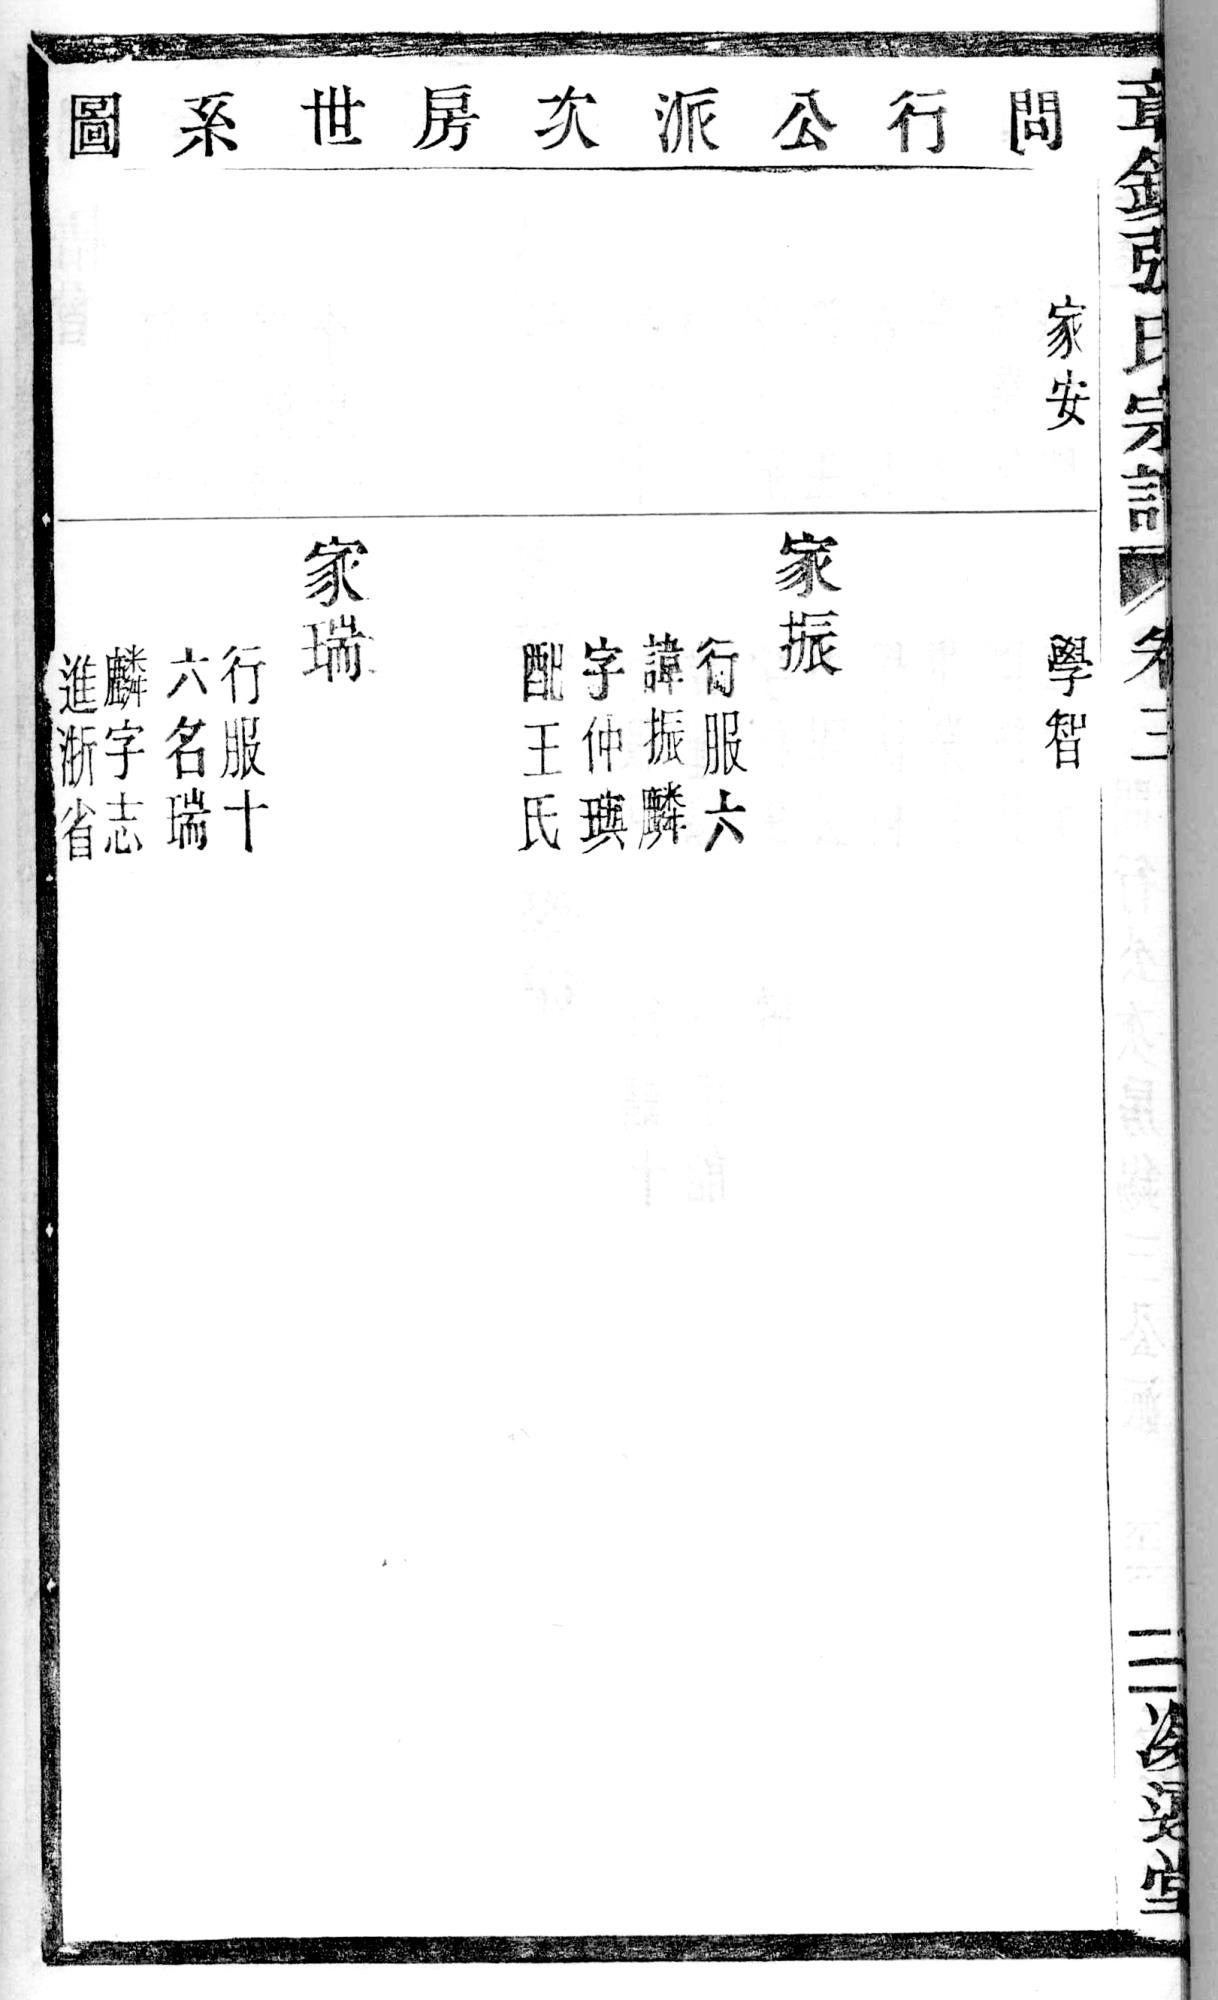 問行公派次房世系圖
家安
學智
家振
行服六
諱振麟
字仲璵
配王氏
家瑞
行服十
六名瑞
麟字志
進浙省
張氏宗譜
卷三
二
堂